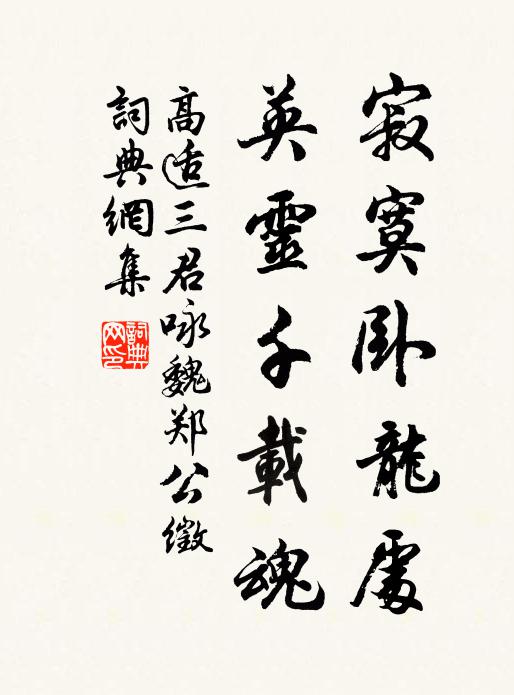 寂寞臥龍處
英靈千載魂
高适三君咏魏郑公徵
詞典網集
詞典网印